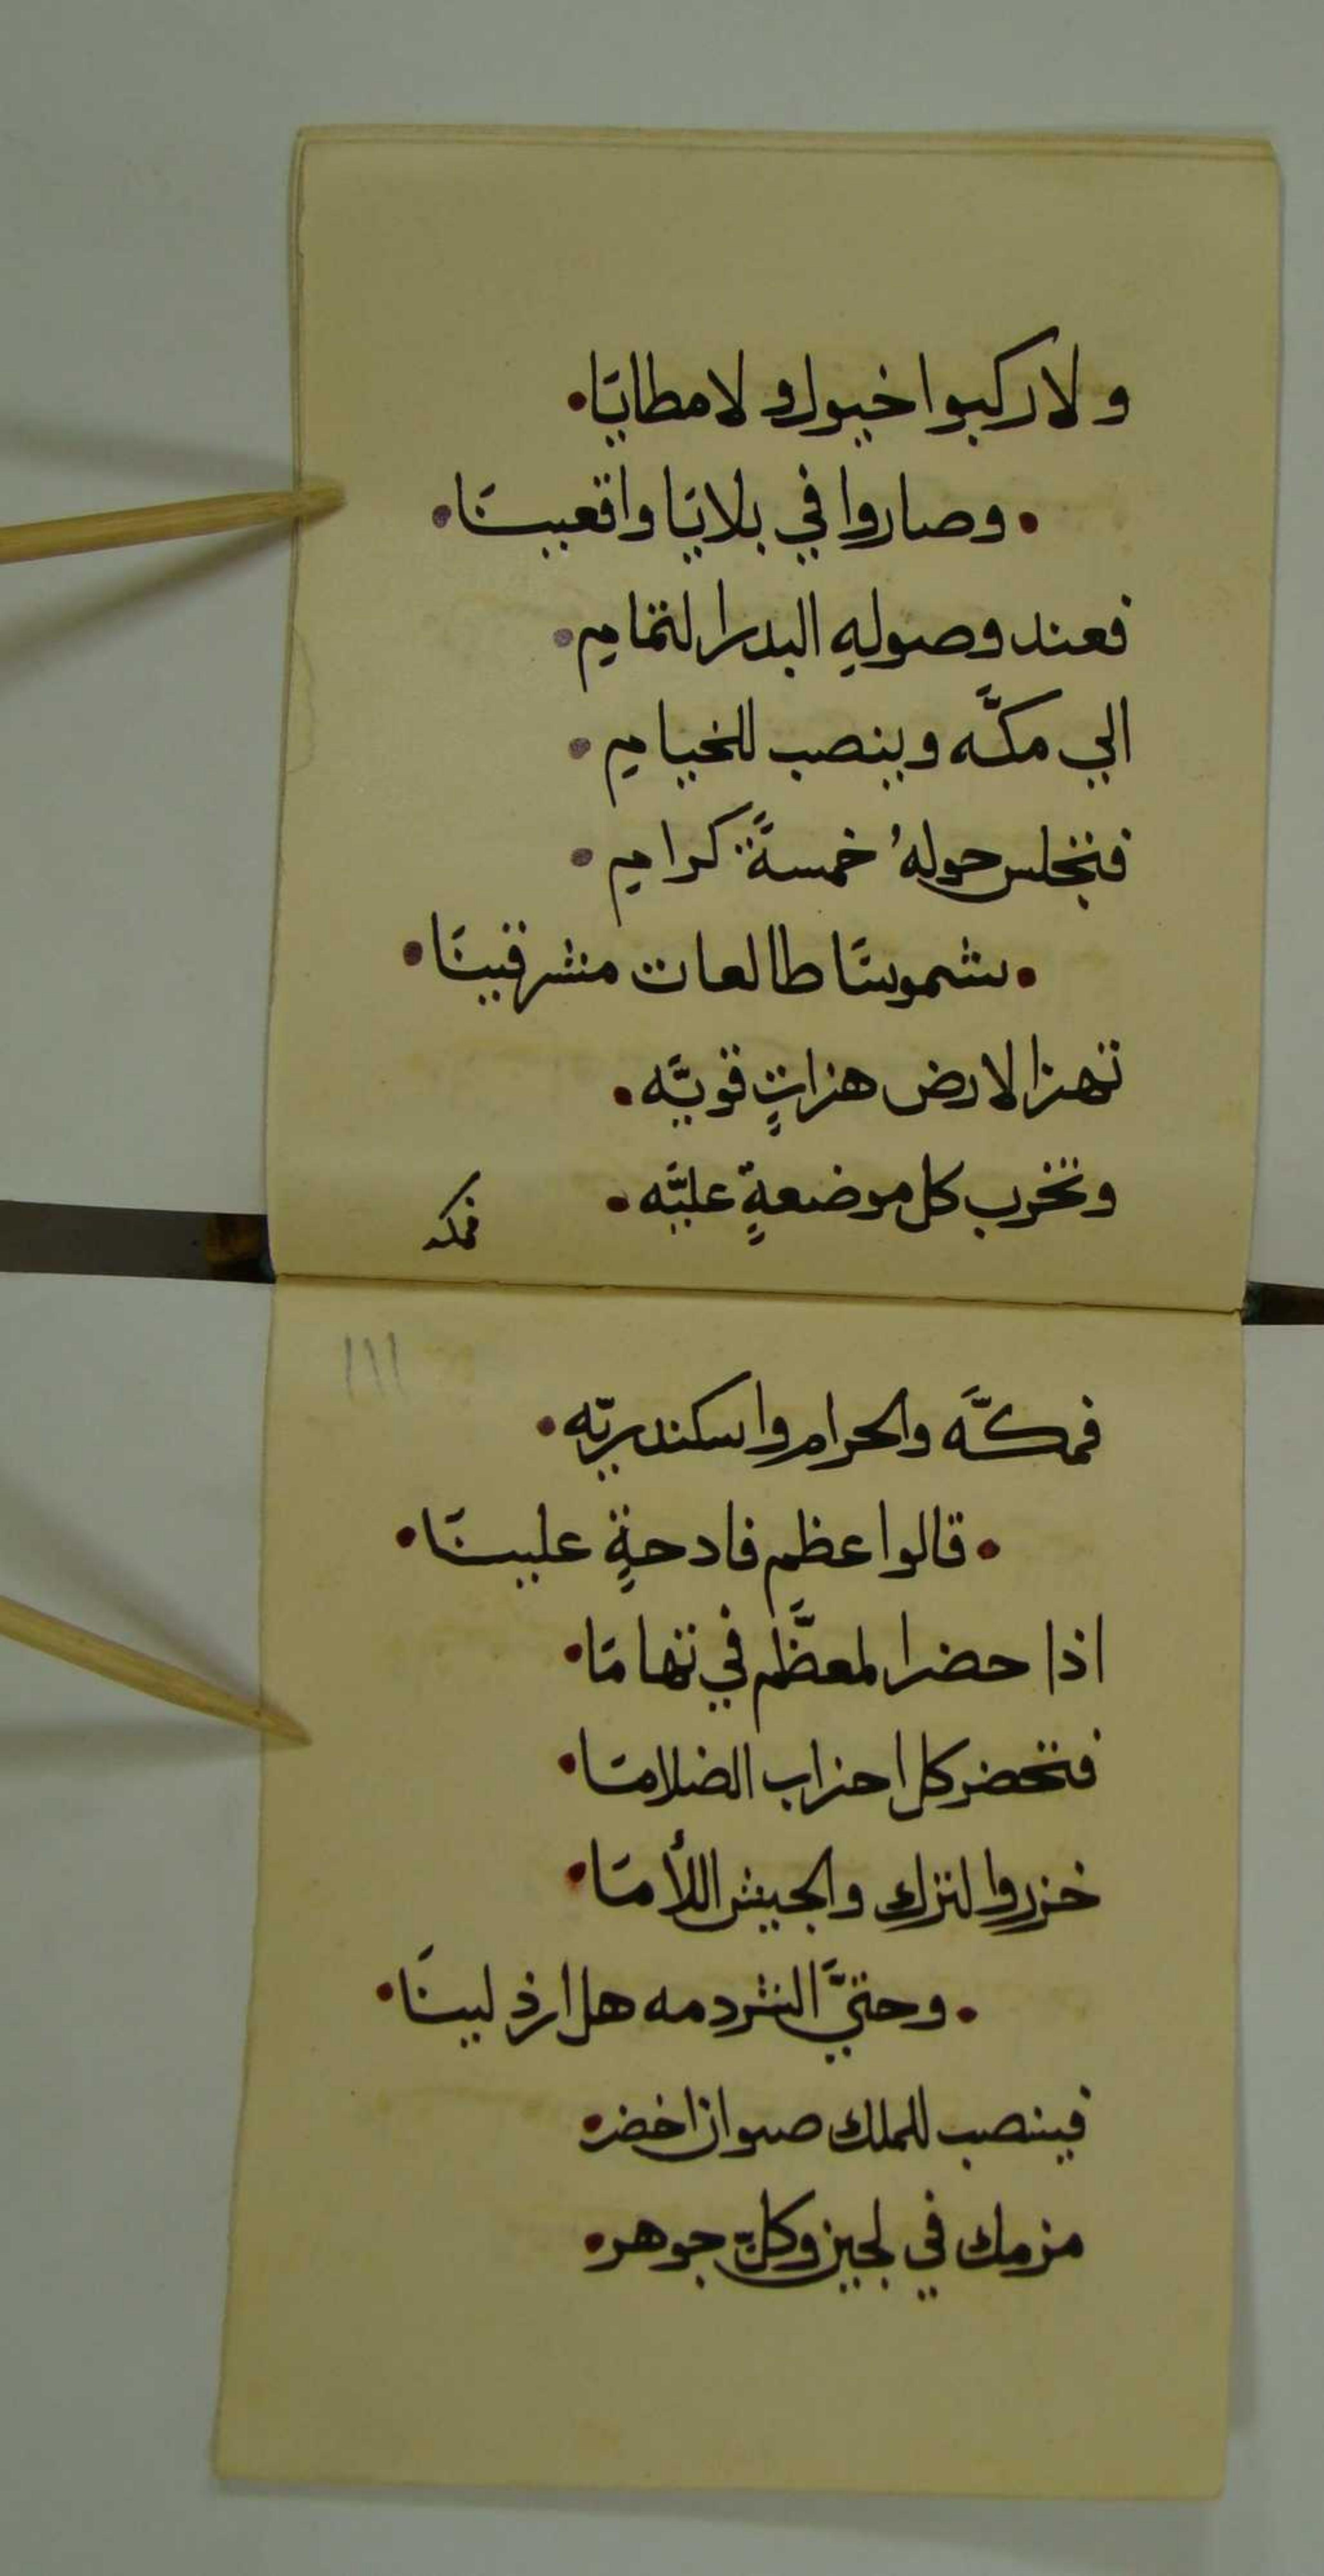 ولا ركبوا خيول ولا مطايَا •
• وصاروا في بلايَا واقعيينَا •
فعند وصولهِ البدر التمايم •
الي مكَّه وينصب للخيايم •
فتجلس حولهُ خمسةً كرايم •
• شموسًا طالعات مشرقينَا •
تهز الارض هزاتٍ قويَّه •
وتخرب كل موضعةٍ عليَّه •
فمكه
١١١
فمكَّه والحرام واسكندريّه •
• قالوا عظم فادحةٍ علينَا •
اذا حضر المعظَّم في تهامَا •
فتحضر كل احزاب الضلامَا •
خزروا لترك والجيش اللأمَا •
• وحتيَّ الشردمه هل ارذلينَا •
فينصب للملك صوان اخضر •
مزمك في لجين وكلّ جوهر •